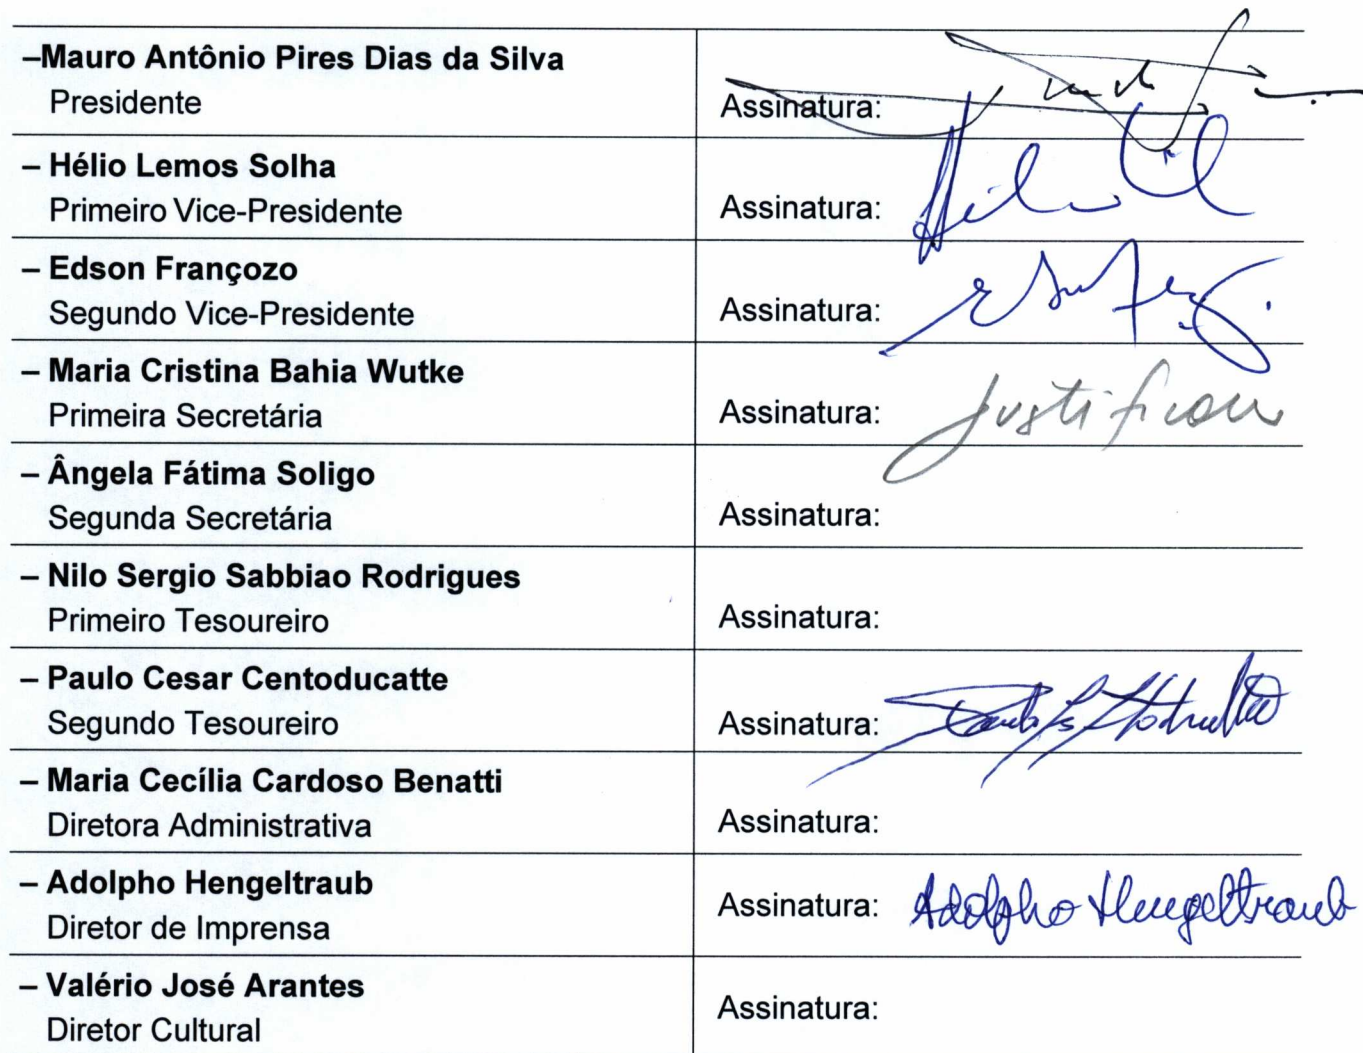 –Mauro Antônio Pires Dias da Silva
Presidente
Assinatura:
– Hélio Lemos Solha
Primeiro Vice-Presidente
Assinatura:
– Edson Françozo
Segundo Vice-Presidente
Assinatura:
– Maria Cristina Bahia Wutke
Primeira Secretária
Assinatura: justificou
– Ângela Fátima Soligo
Segunda Secretária
Assinatura:
– Nilo Sergio Sabbiao Rodrigues
Primeiro Tesoureiro
Assinatura:
– Paulo Cesar Centoducatte
Segundo Tesoureiro
Assinatura:
– Maria Cecília Cardoso Benatti
Diretora Administrativa
Assinatura:
– Adolpho Hengeltraub
Diretor de Imprensa
Assinatura: Adolpho Hengeltraub
– Valério José Arantes
Diretor Cultural
Assinatura: